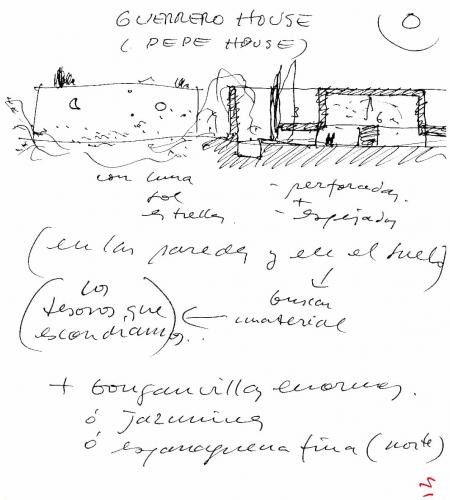 GUERRERO HOUSE
(PEPE HOUSE)
O
con luna
sol
estrellas.
- perforadas.
+
- espejadas
(en las paredes y en el suelo)
buscar
material
(los
tesoros que
escondíamos..
+ bouganvillas enormes.
ó jazmines
ó esparraguera fina (norte)